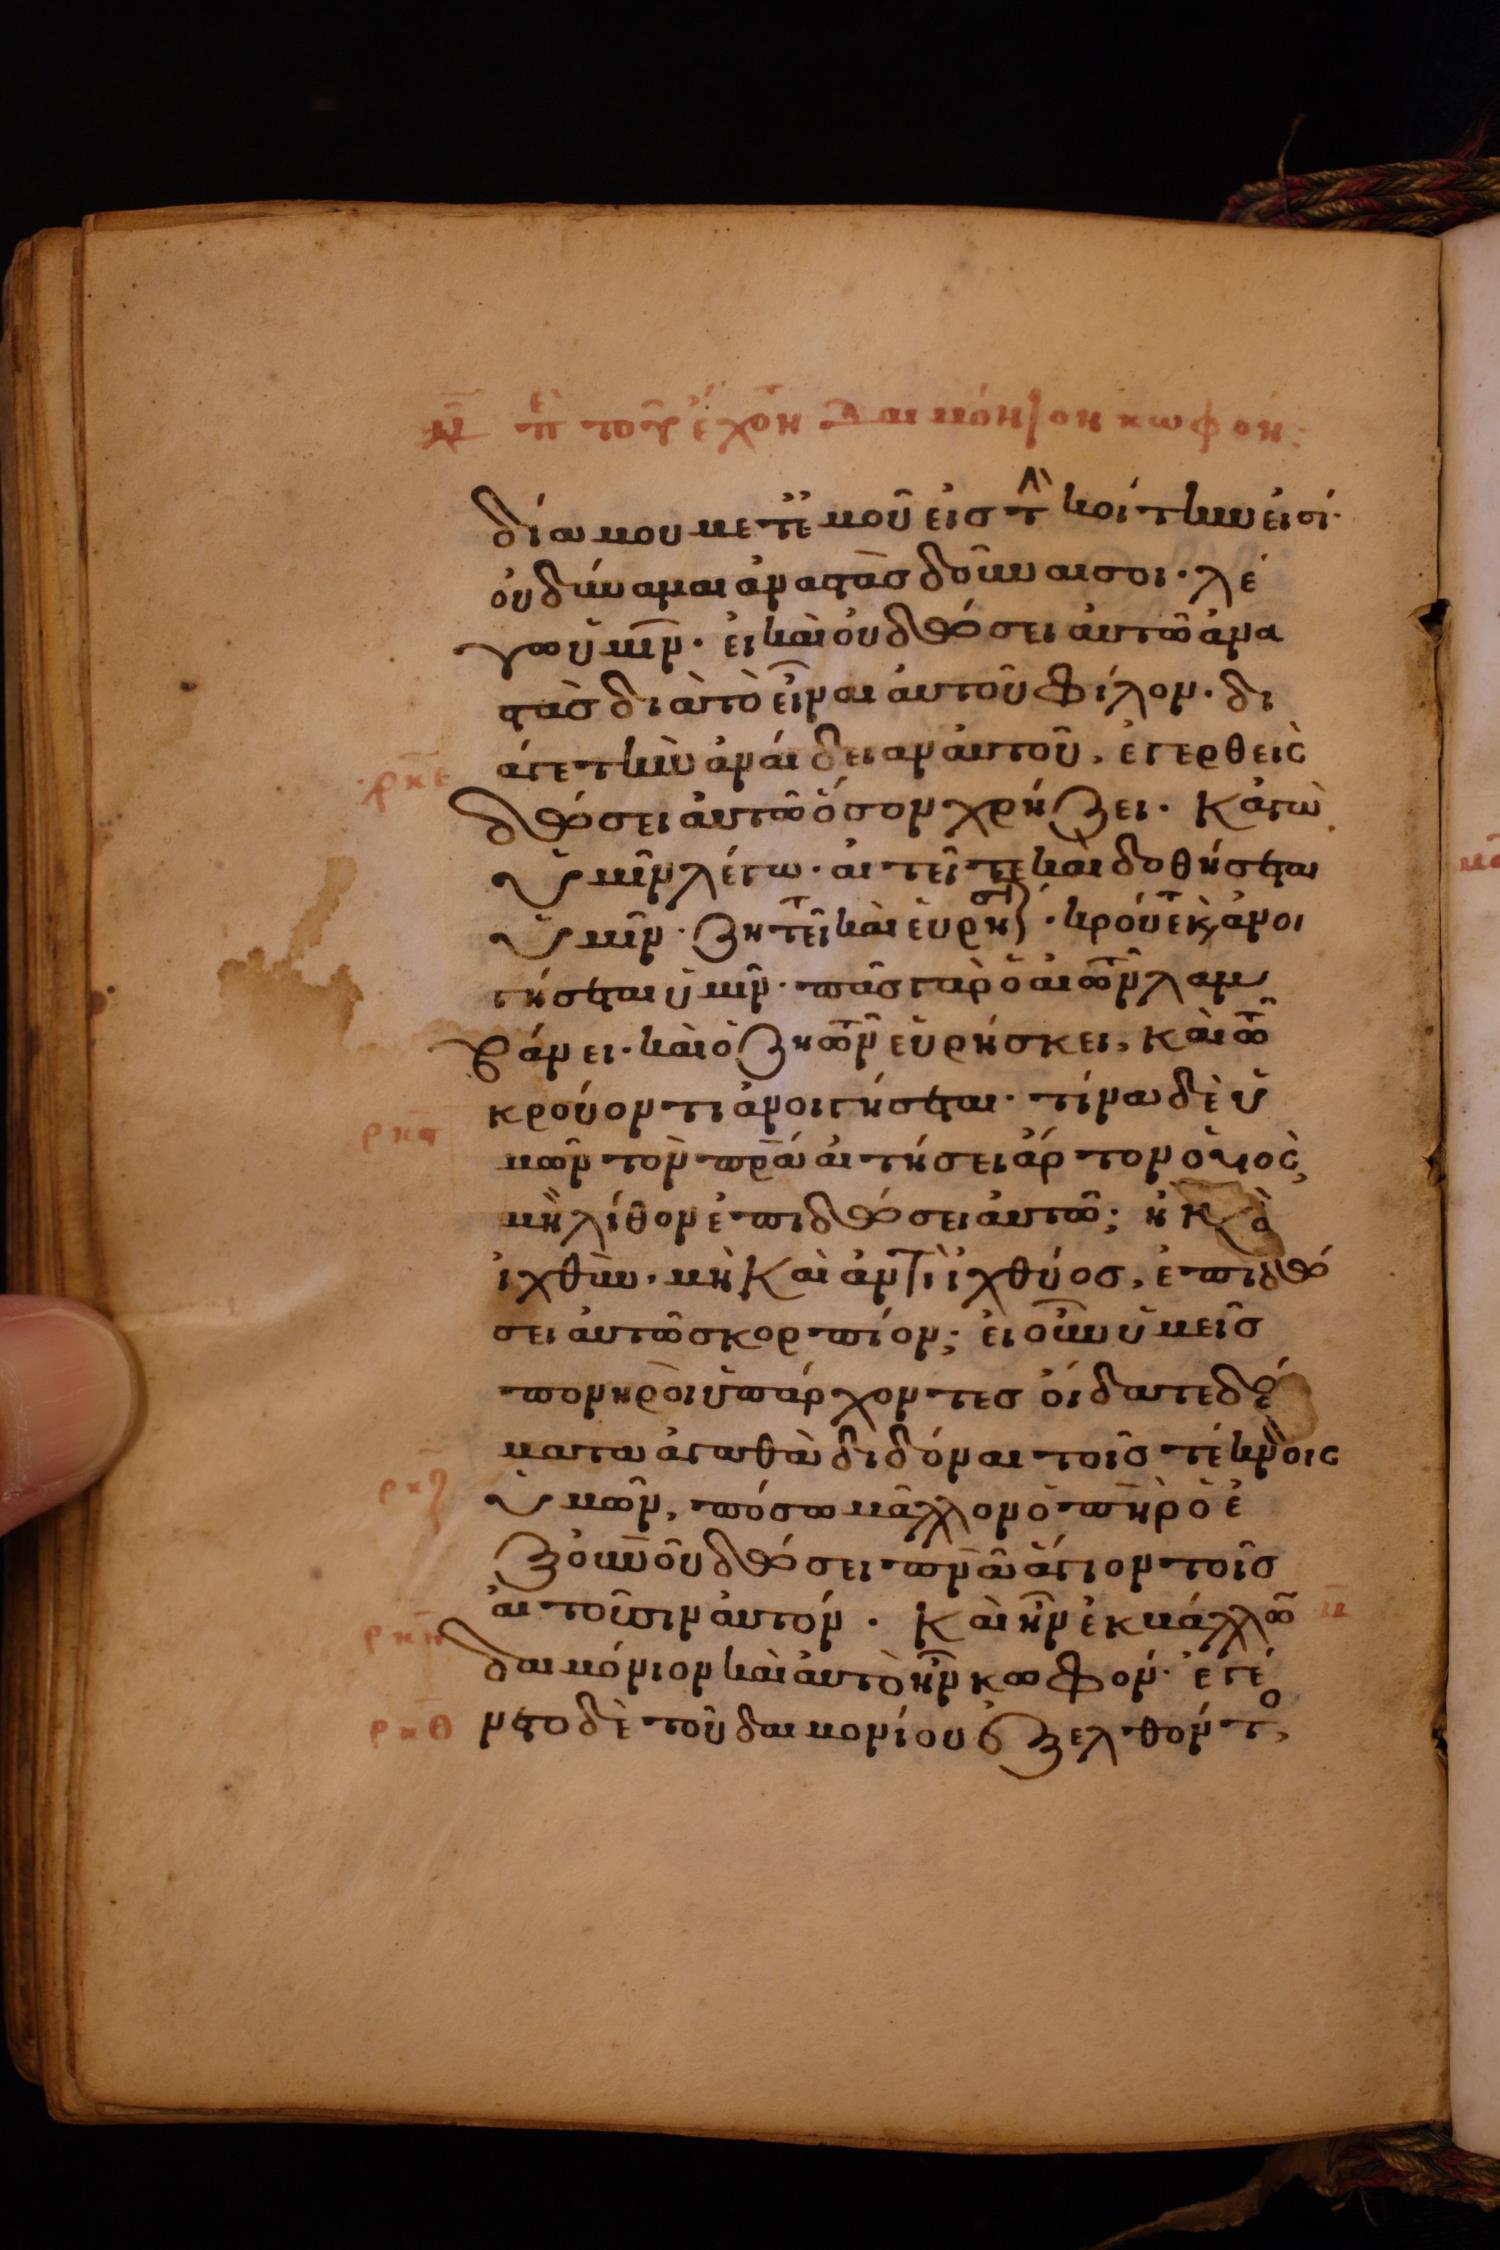 δία μου μετ ἐμοῦ εἰς τὴν κοίτην εἰσί·
οὐ δύναμαι ἀναστὰς δοῦναι σοι· λέ
γω ὑμῖν· εἰ καὶ οὐ δώσει αὐτῶ ἀνα
στὰς διὰ τὸ εἶναι αὐτοῦ φίλον· δι
ρκε
άγε τὴν ἀναίδειαν αὐτοῦ, ἐγερθεὶς
δώσει αὐτῶ ὅσον χρήζει· Κἀγὼ
ὑμῖν λέγω· αἰτεῖτε καὶ δοθήσεται
ὑμῖν· ζητεῖτε καὶ εὑρήσετε· κρούετε καὶ ἀνοι
γήσεται ὑμῖν· πᾶς γὰρ ὁ αἰτῶν λαμ
βάνει· καὶ ὁ ζητῶν εὑρήσκει, καὶ τῶ
κρούοντι ἀνοιγήσεται· τίνα δὲ ὑ
μῶν τὸν πρα αἰτήσει ἄρτον ὁ υἱὸς,
μὴ λίθον ἐπιδώσει αὐτῶ; ἢ καὶ
ἰχθὺν· μὴ καὶ ἀντὶ ἰχθύος, ἐπιδώ
σει αὐτῶ σκορπίον; εἰ οὖν ὑμεῖς
πονηροὶ ὑπάρχοντες οἴδατε δό
ματα ἀγαθὰ διδόναι τοῖς τέκνοις
ρκζ
ὑμῶν, πόσω μᾶλλον ὁ πηρ ὁ ἐ
ξ οὐνοῦ δώσει πνα ἅγιον τοῖς
αἰτοῦσιν αὐτόν· Καὶ ἦν ἐκβάλλων
π
ρκη
δαιμόνιον καὶ αὐτὸ ἦν κωφόν· ἐγέ
ρκθ
νετο δὲ τοῦ δαιμονίου ἐξελθόντος,